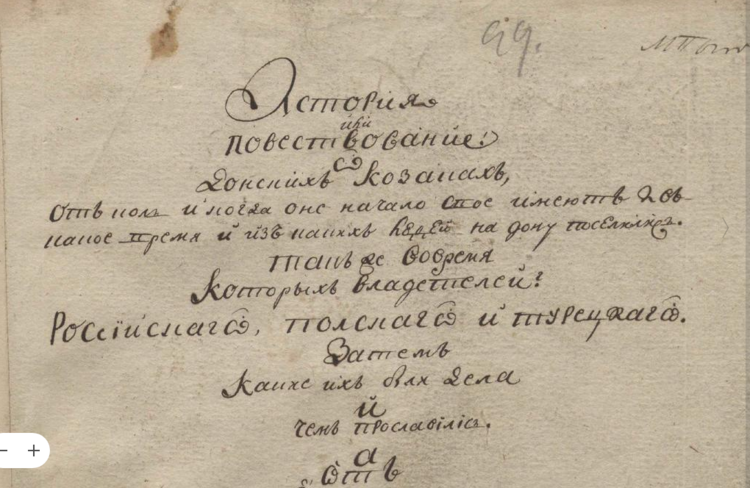 919.
Исторія
или
повествованіе:
ѡ
донскихъ козакахъ,
отъ коль и когда оне начало свое имеютъ и въ
какое время и изъ какихъ людей на дону поселились.
такъ же вовремя
которыхъ владетелей:
Россійскагѡ, полскагѡ и турецкагѡ.
Затемъ
какие ихъ были дела
и
чемъ прославілис.
а
ѿтъ